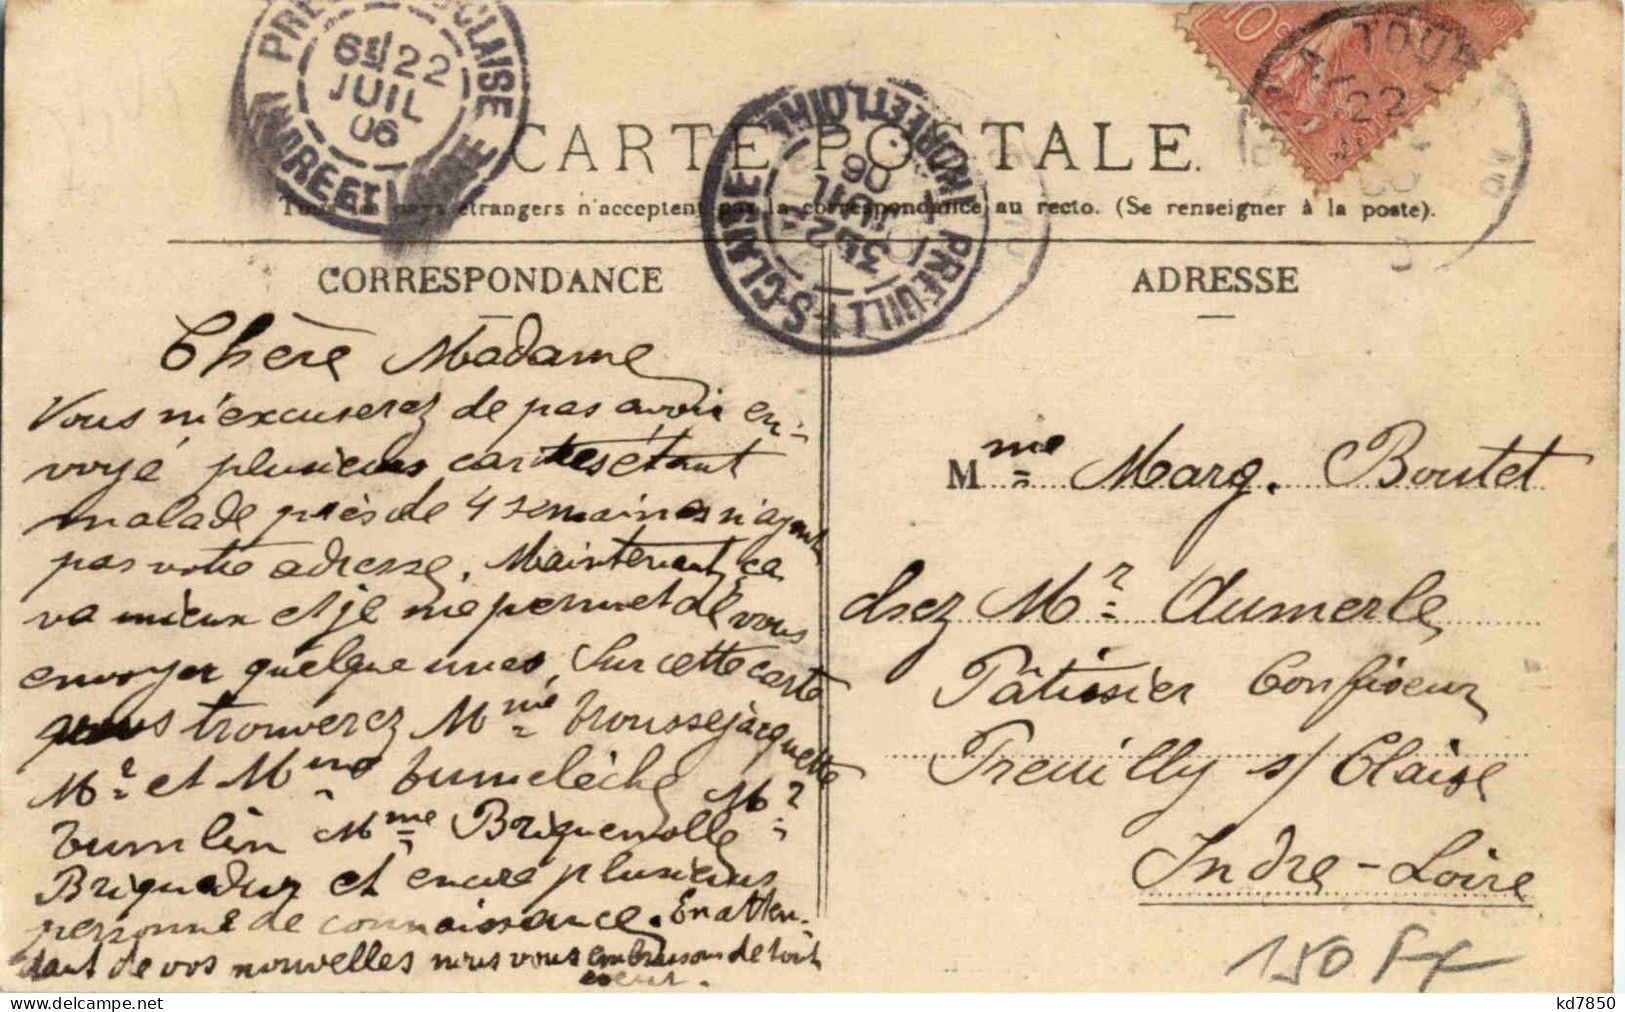 PREUILLY-S-CLAISE
6E 22
JUIL
06
INDRE ET LOIRE
10c
TOURS
22
CARTE POSTALE.
PREUILLY-S-CLAISE
JUIL
06
INDRE ET LOIRE
Tous les pays étrangers n'acceptent pas la correspondance au recto. (Se renseigner à la poste).
CORRESPONDANCE
ADRESSE
Chère Madame
Vous m'excuserez de pas avoir en-
voyé plusieurs cartes étant
malade près de 4 semaines n'ayant
pas votre adresse. Maintenant ça
va mieux et je me permet de vous
envoyer quelque unes, Sur cette carte
vous trouverez Mme Troussejacquette
Mr et Mme Tumelèche Mr
Tumelin Mme Briquemolle
Briquedur et encore plusieurs
personne de connaissance. En atten-
dant de vos nouvelles nous vous embrasson de tout
coeur.
Mme Marg. Boutet
chez Mr Aumerle
Pâtissier Confiseur
Preuilly s/ Claise
Indre-Loire
150 FF
kd7850